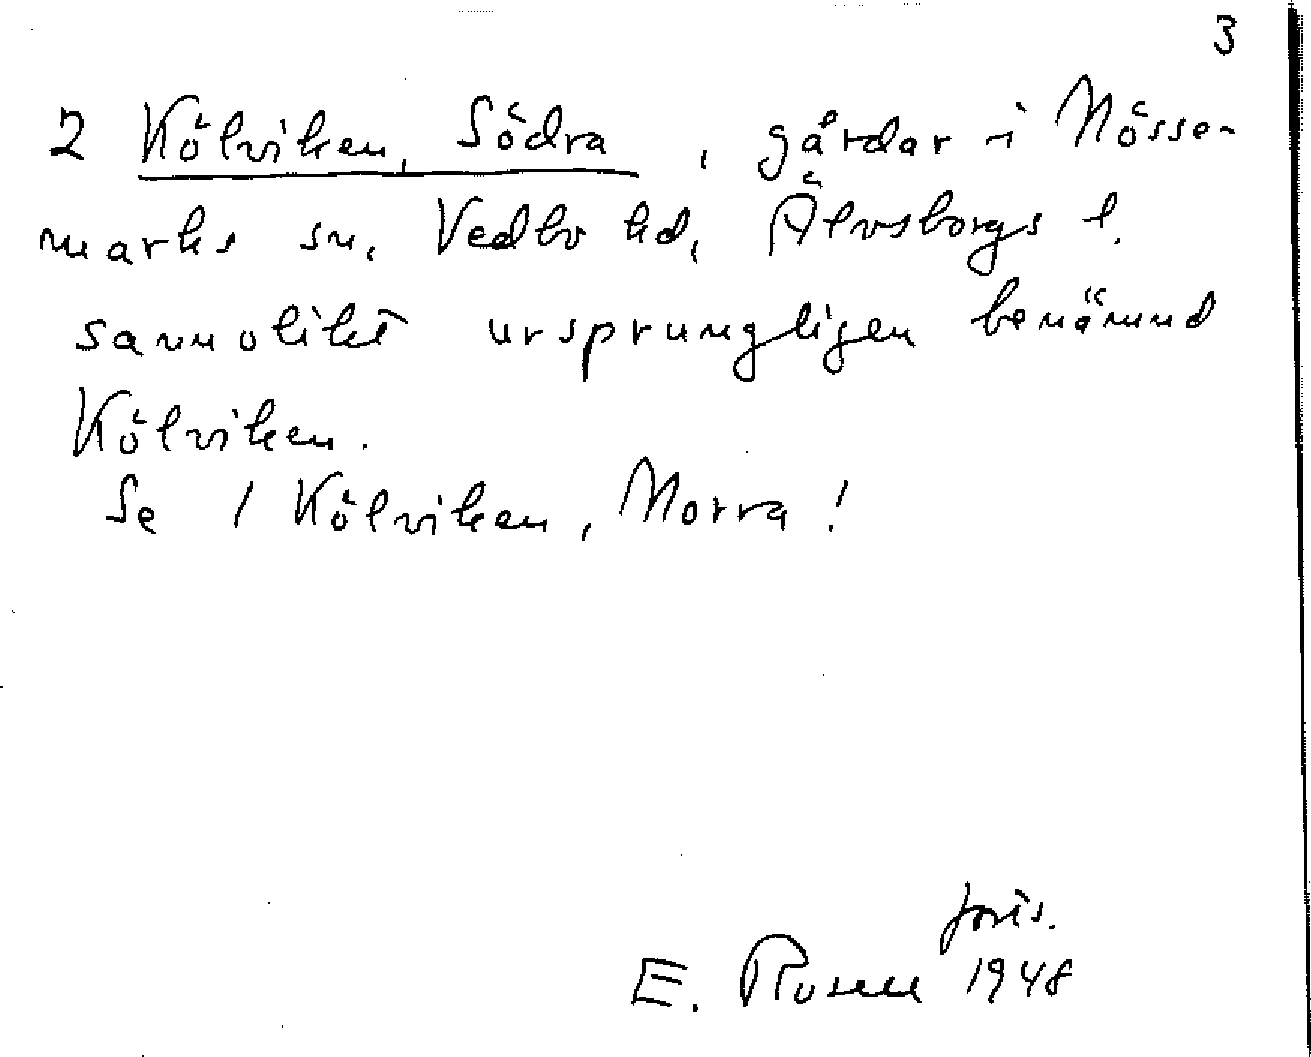 3
2 Kölviken, Södra, gårdar i Nösse-
marks sn, Vedbo hd, Älvsborgs l.
sannolikt ursprungligen benämnd
Kölviken.
Se 1 Kölviken, Norra!
forts.
E. Rosell 1948